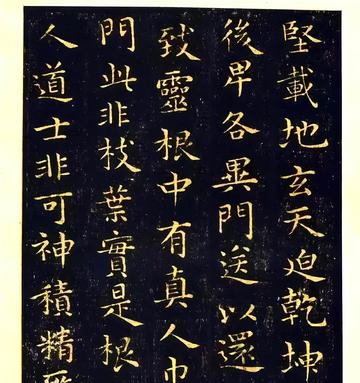 堅載地玄天迫乾坤
後卑各異門送以還
致靈根中有真人巾
門此非枝葉實是根
人道士非可神積精